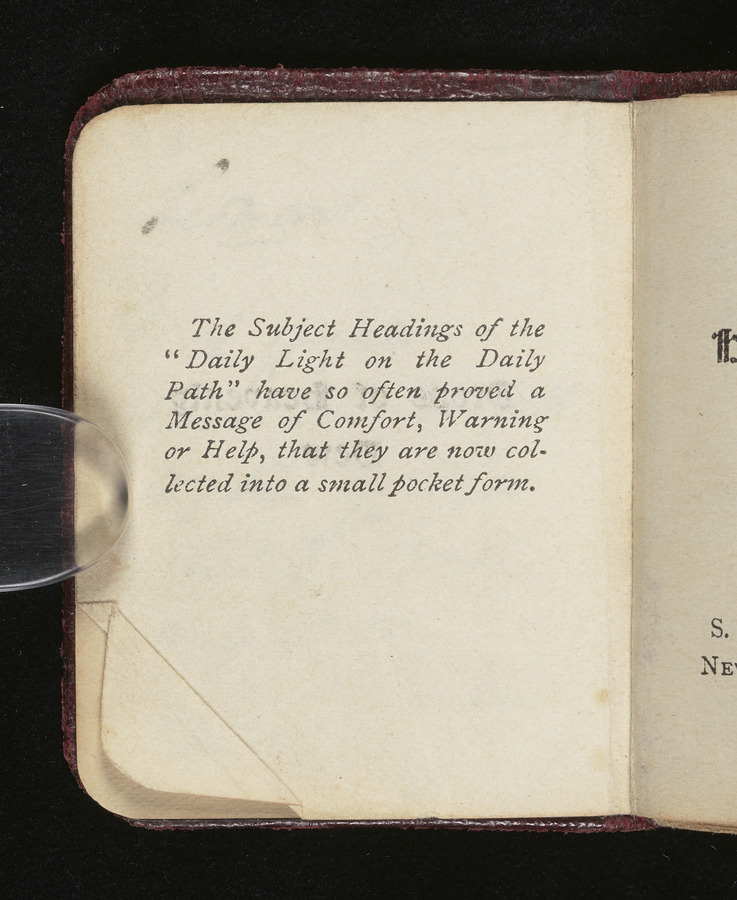 The Subject Headings of the
“Daily Light on the Daily
Path” have so often proved a
Message of Comfort, Warning
or Help, that they are now col-
lected into a small pocket form.
S.